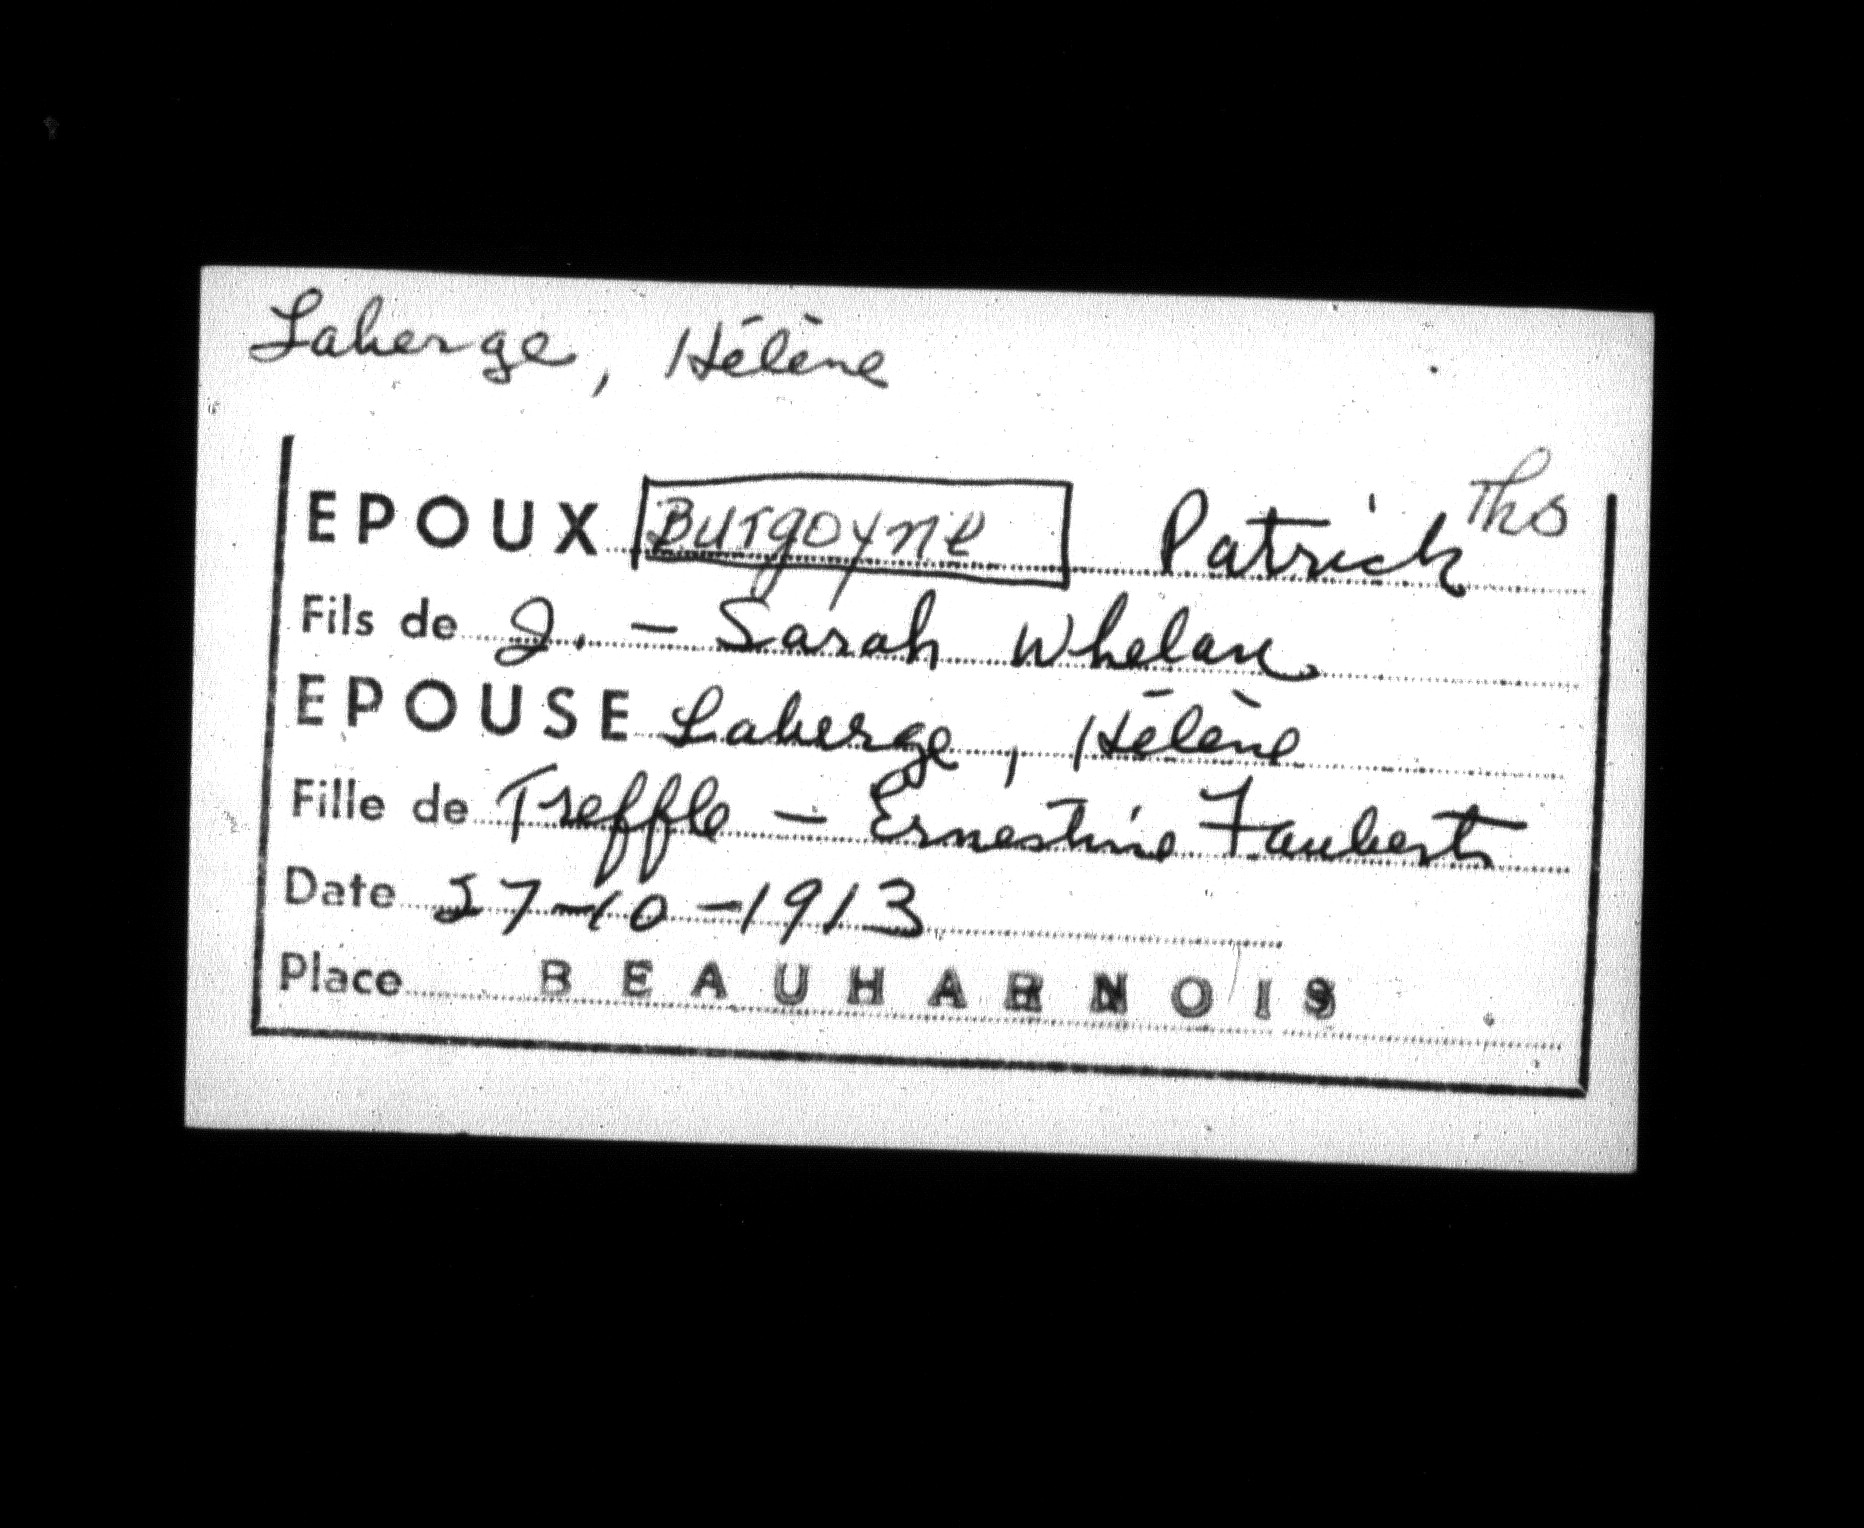 Laberge, Hélène
EPOUX Burgoyne Patrick Ths
Fils de J. - Sarah Whelan
EPOUSE Laberge, Hélène
Fille de Treffle - Ernestine Faubert
Date 27-10-1913
Place BEAUHARNOIS